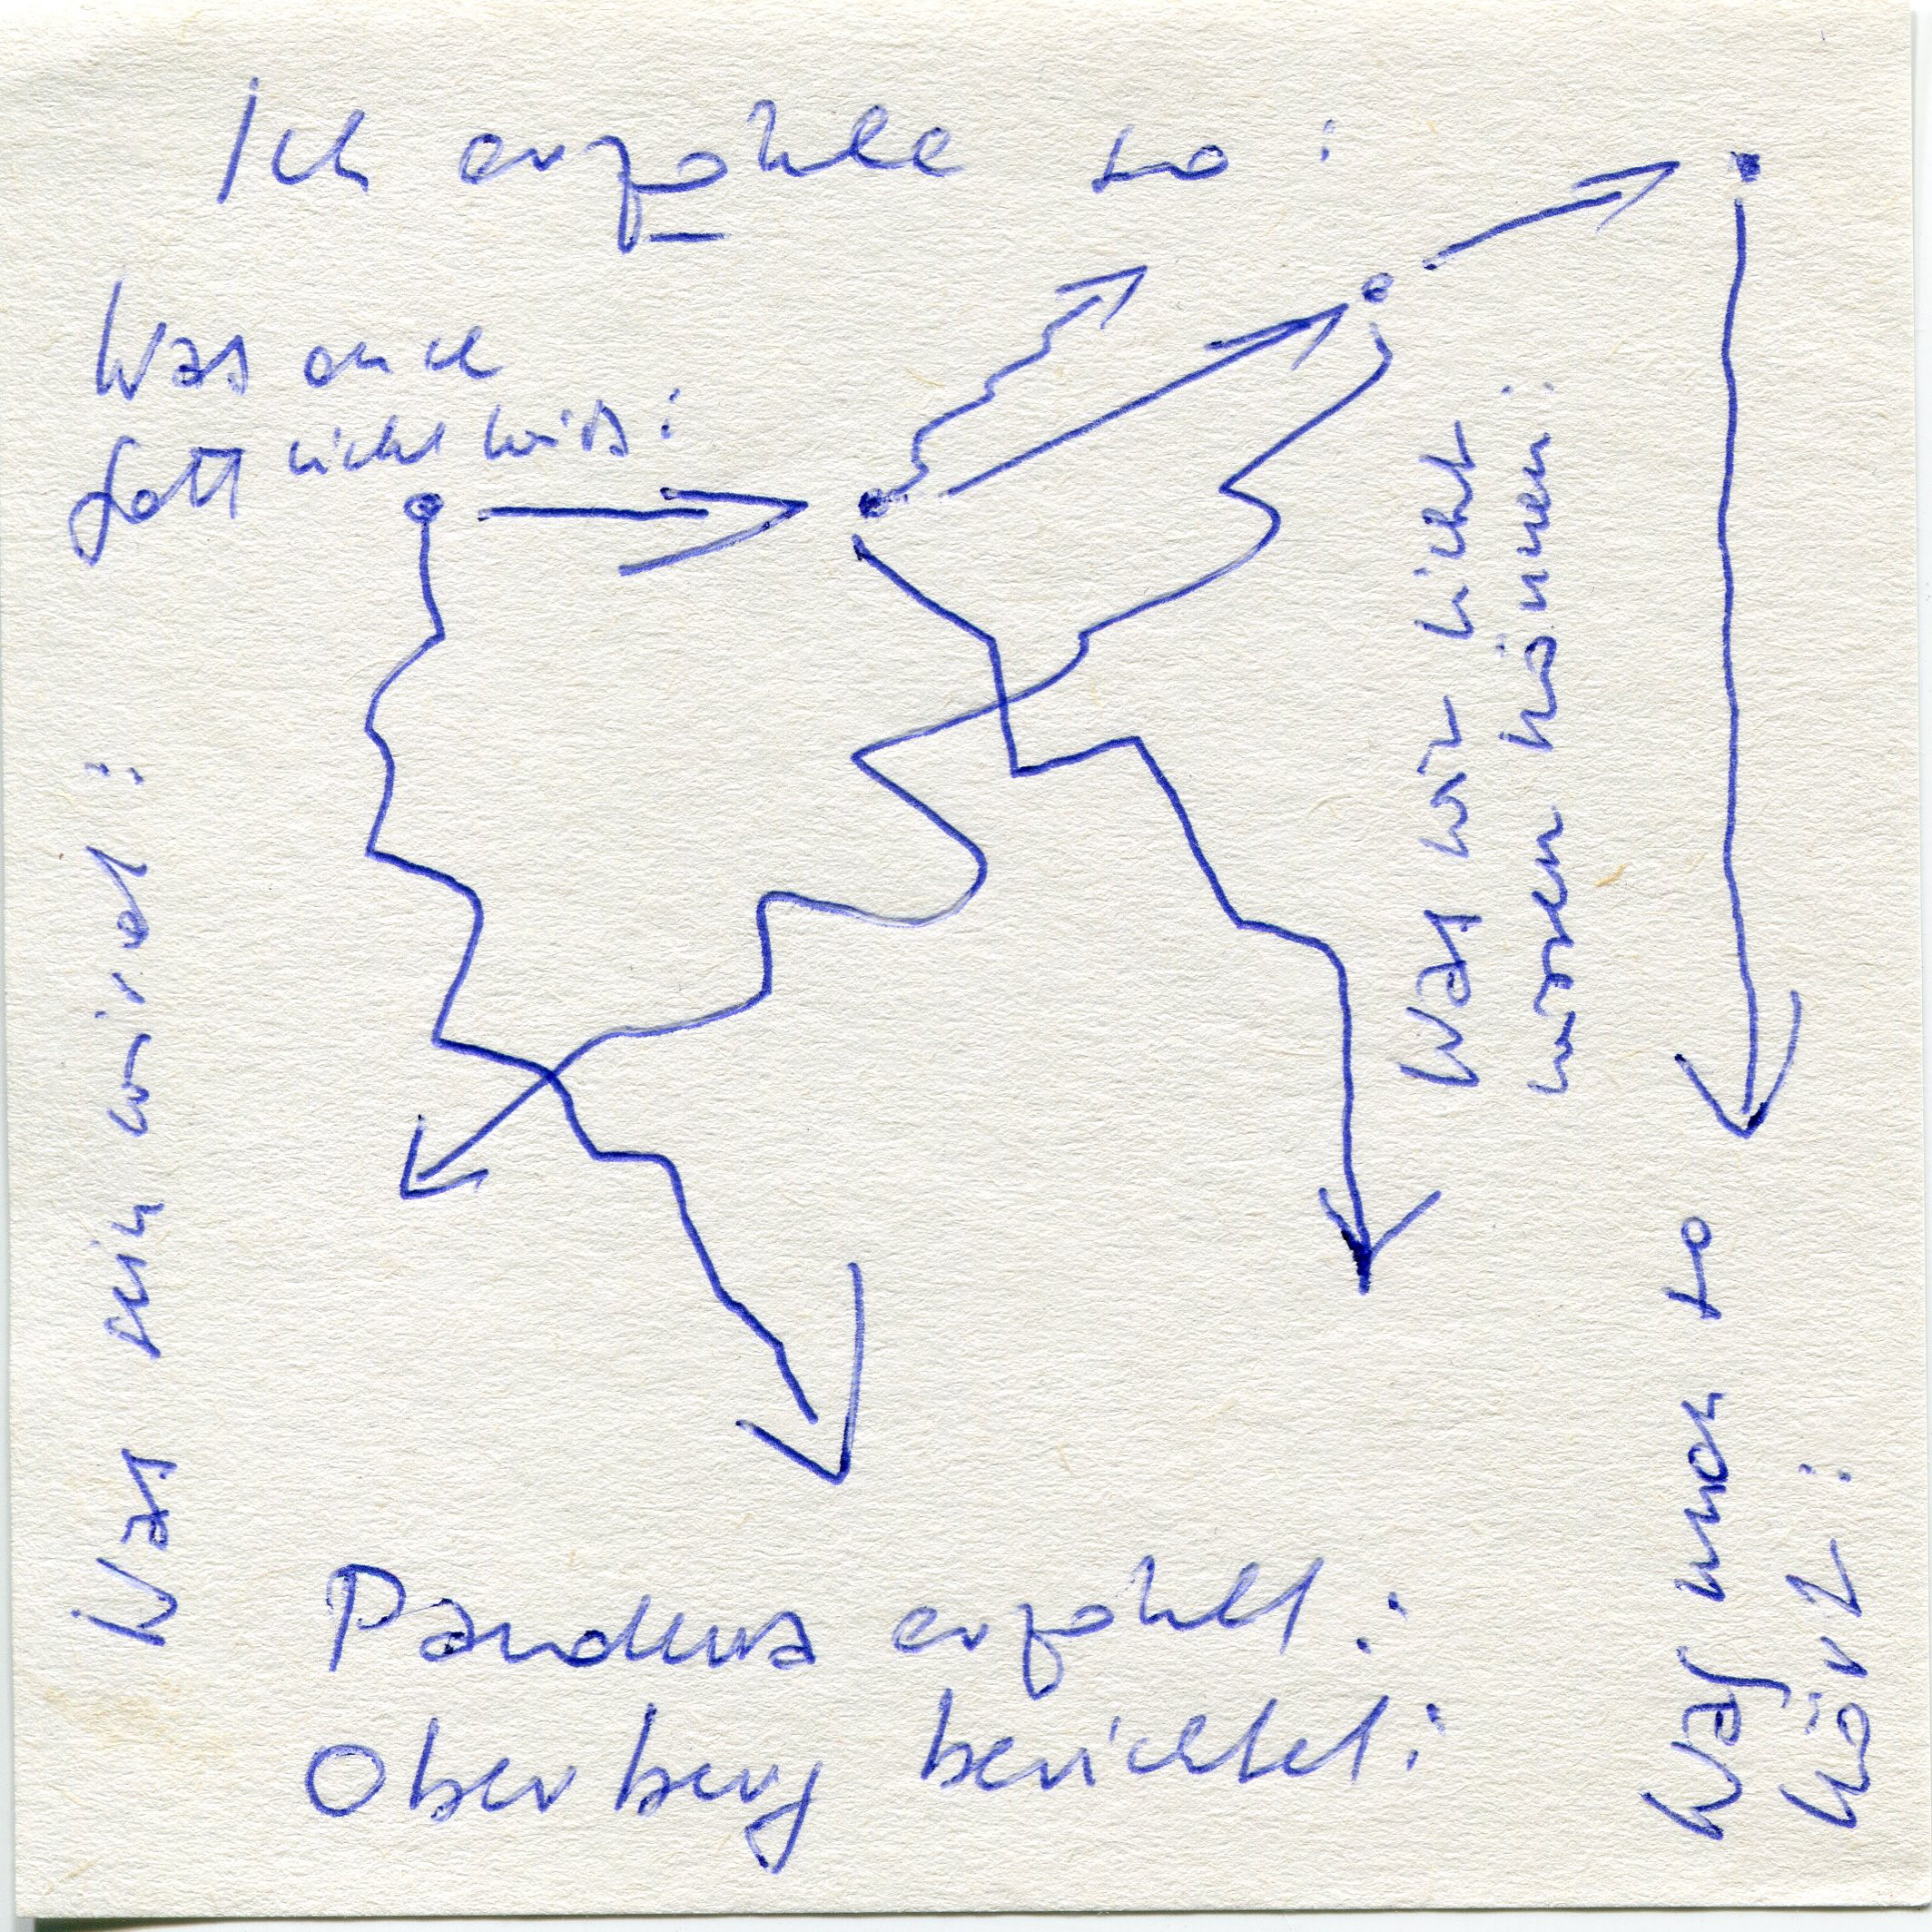 Ich erzähle so:
Was auch
Gott nicht weiß:
Was sein wird:
Was wir nicht
wissen können:
Was man so
hört:
Pandura erzählt:
Oberberg berichtet: